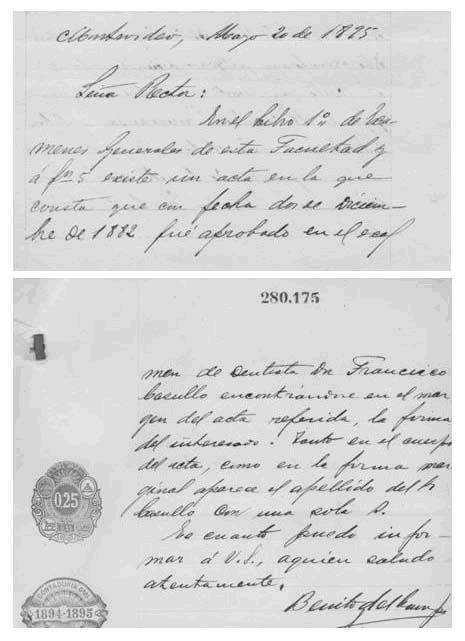 Montevideo, Mayo 20 de 1895.
Señor Rector:
En el Libro 1º de Exá-
menes Generales de esta Facultad y
á fs. 5 existe un acta en la que
consta que con fecha dos de Diciem-
bre de 1882 fué aprobado en el exá
280.175
men de Dentista Dn Francisco
Casullo encontrándose en el mar
gen del acta referida, la firma
del interesado. Tanto en el cuerpo
del acta, como en la firma mar
ginal aparece el apellido del Sr
Casullo con una sola S.
Es cuanto puedo infor-
mar á V.S., a quien saludo
atentamente.
Benito del Campo
0.25
CONTADURIA GRAL
1894-1895